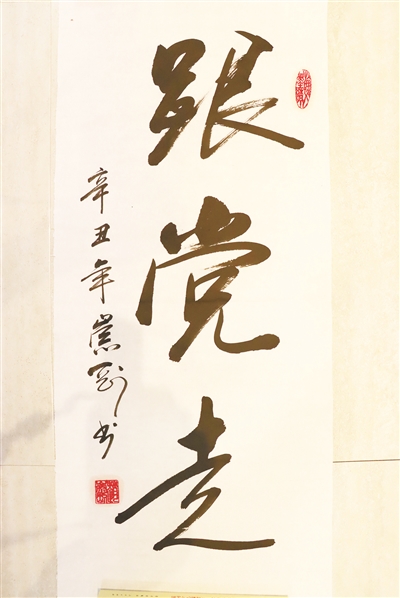 跟党走
辛丑年 书